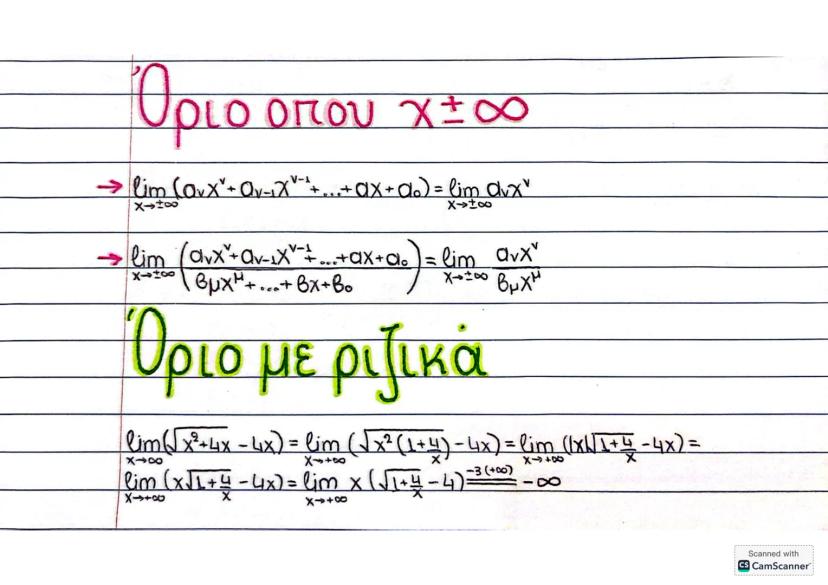 Όριο οπου x±∞
→ lim x→±∞ (aᵥxᵛ+aᵥ₋₁xᵛ⁻¹+...+ax+a₀) = lim x→±∞ aᵥxᵛ
→ lim x→±∞ ((aᵥxᵛ+aᵥ₋₁xᵛ⁻¹+...+ax+a₀)/(βμx^μ+...+βx+β₀)) = lim x→±∞ (aᵥxᵛ)/(βμx^μ)
Όριο με ριζικά
lim x→∞ (√(x²+4x) - 4x) = lim x→+∞ (√(x²(1+4/x)) - 4x) = lim x→+∞ (|x|√(1+4/x) - 4x) =
lim x→+∞ (x√(1+4/x) - 4x) = lim x→+∞ x(√(1+4/x) - 4) =^(-3(+∞)) -∞
Scanned with
CS CamScanner